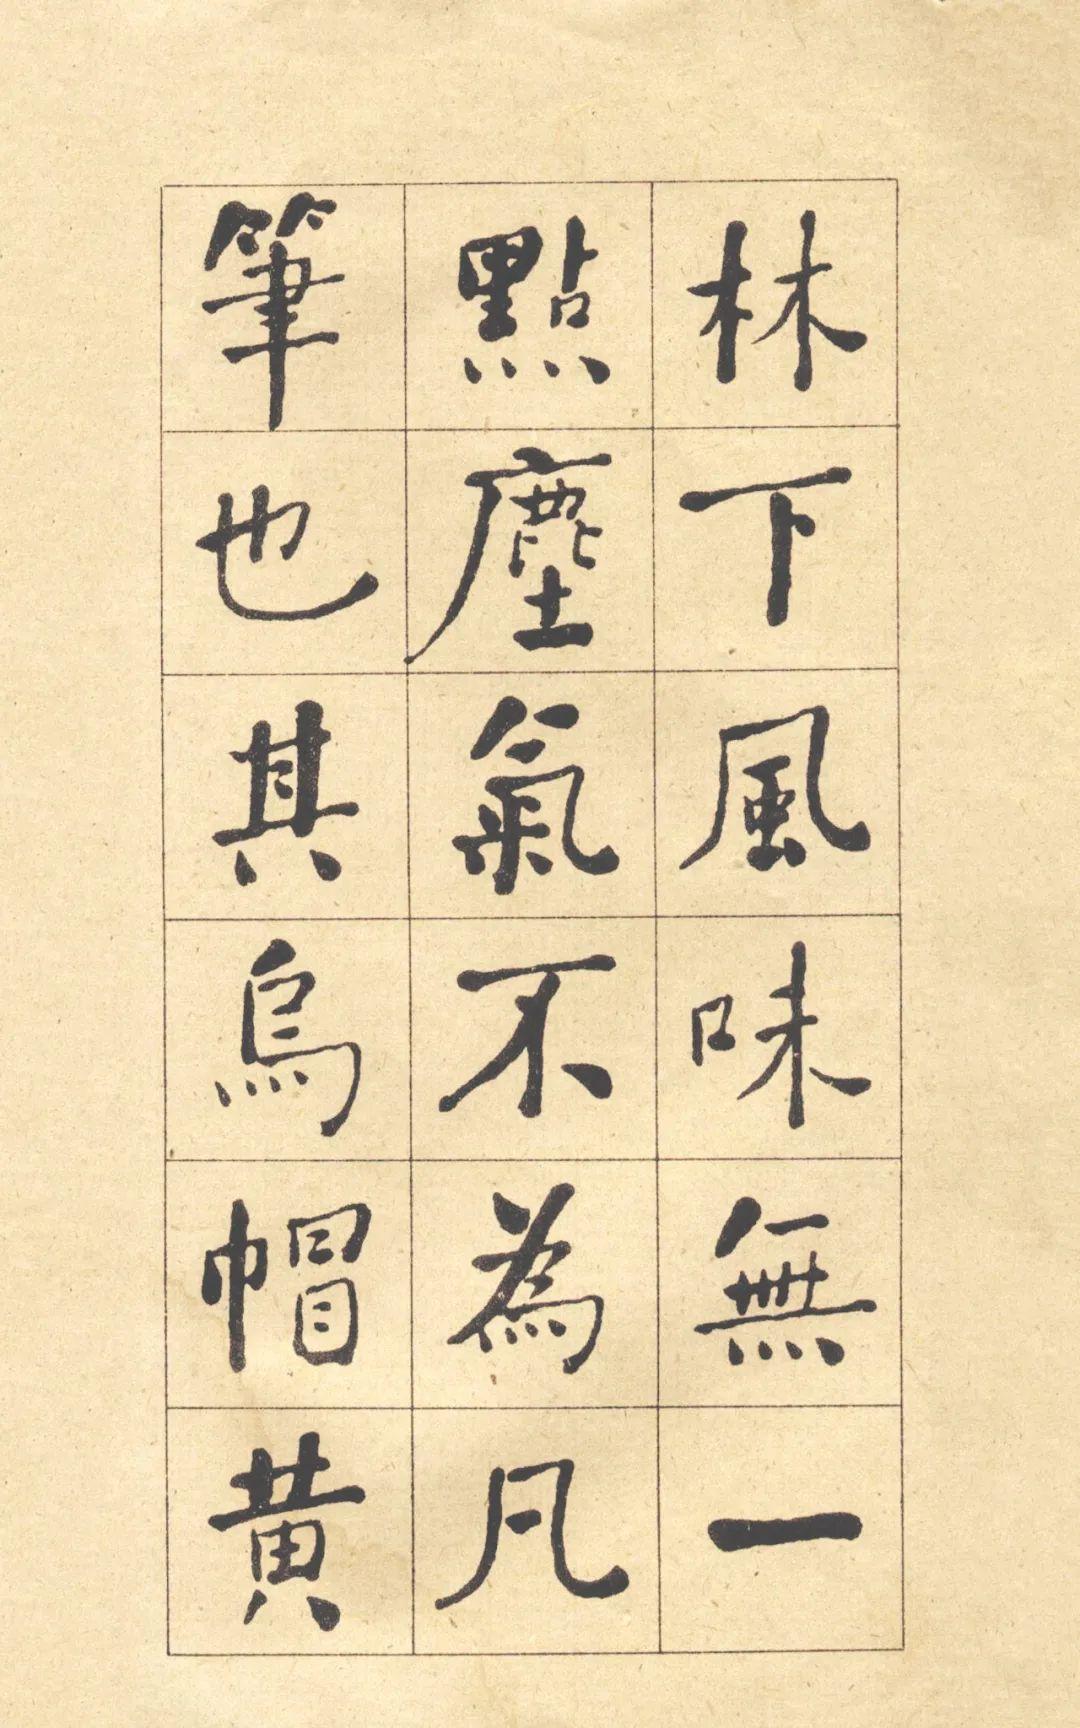 林下風味無一
點塵氣不為凡
筆也其烏帽黃